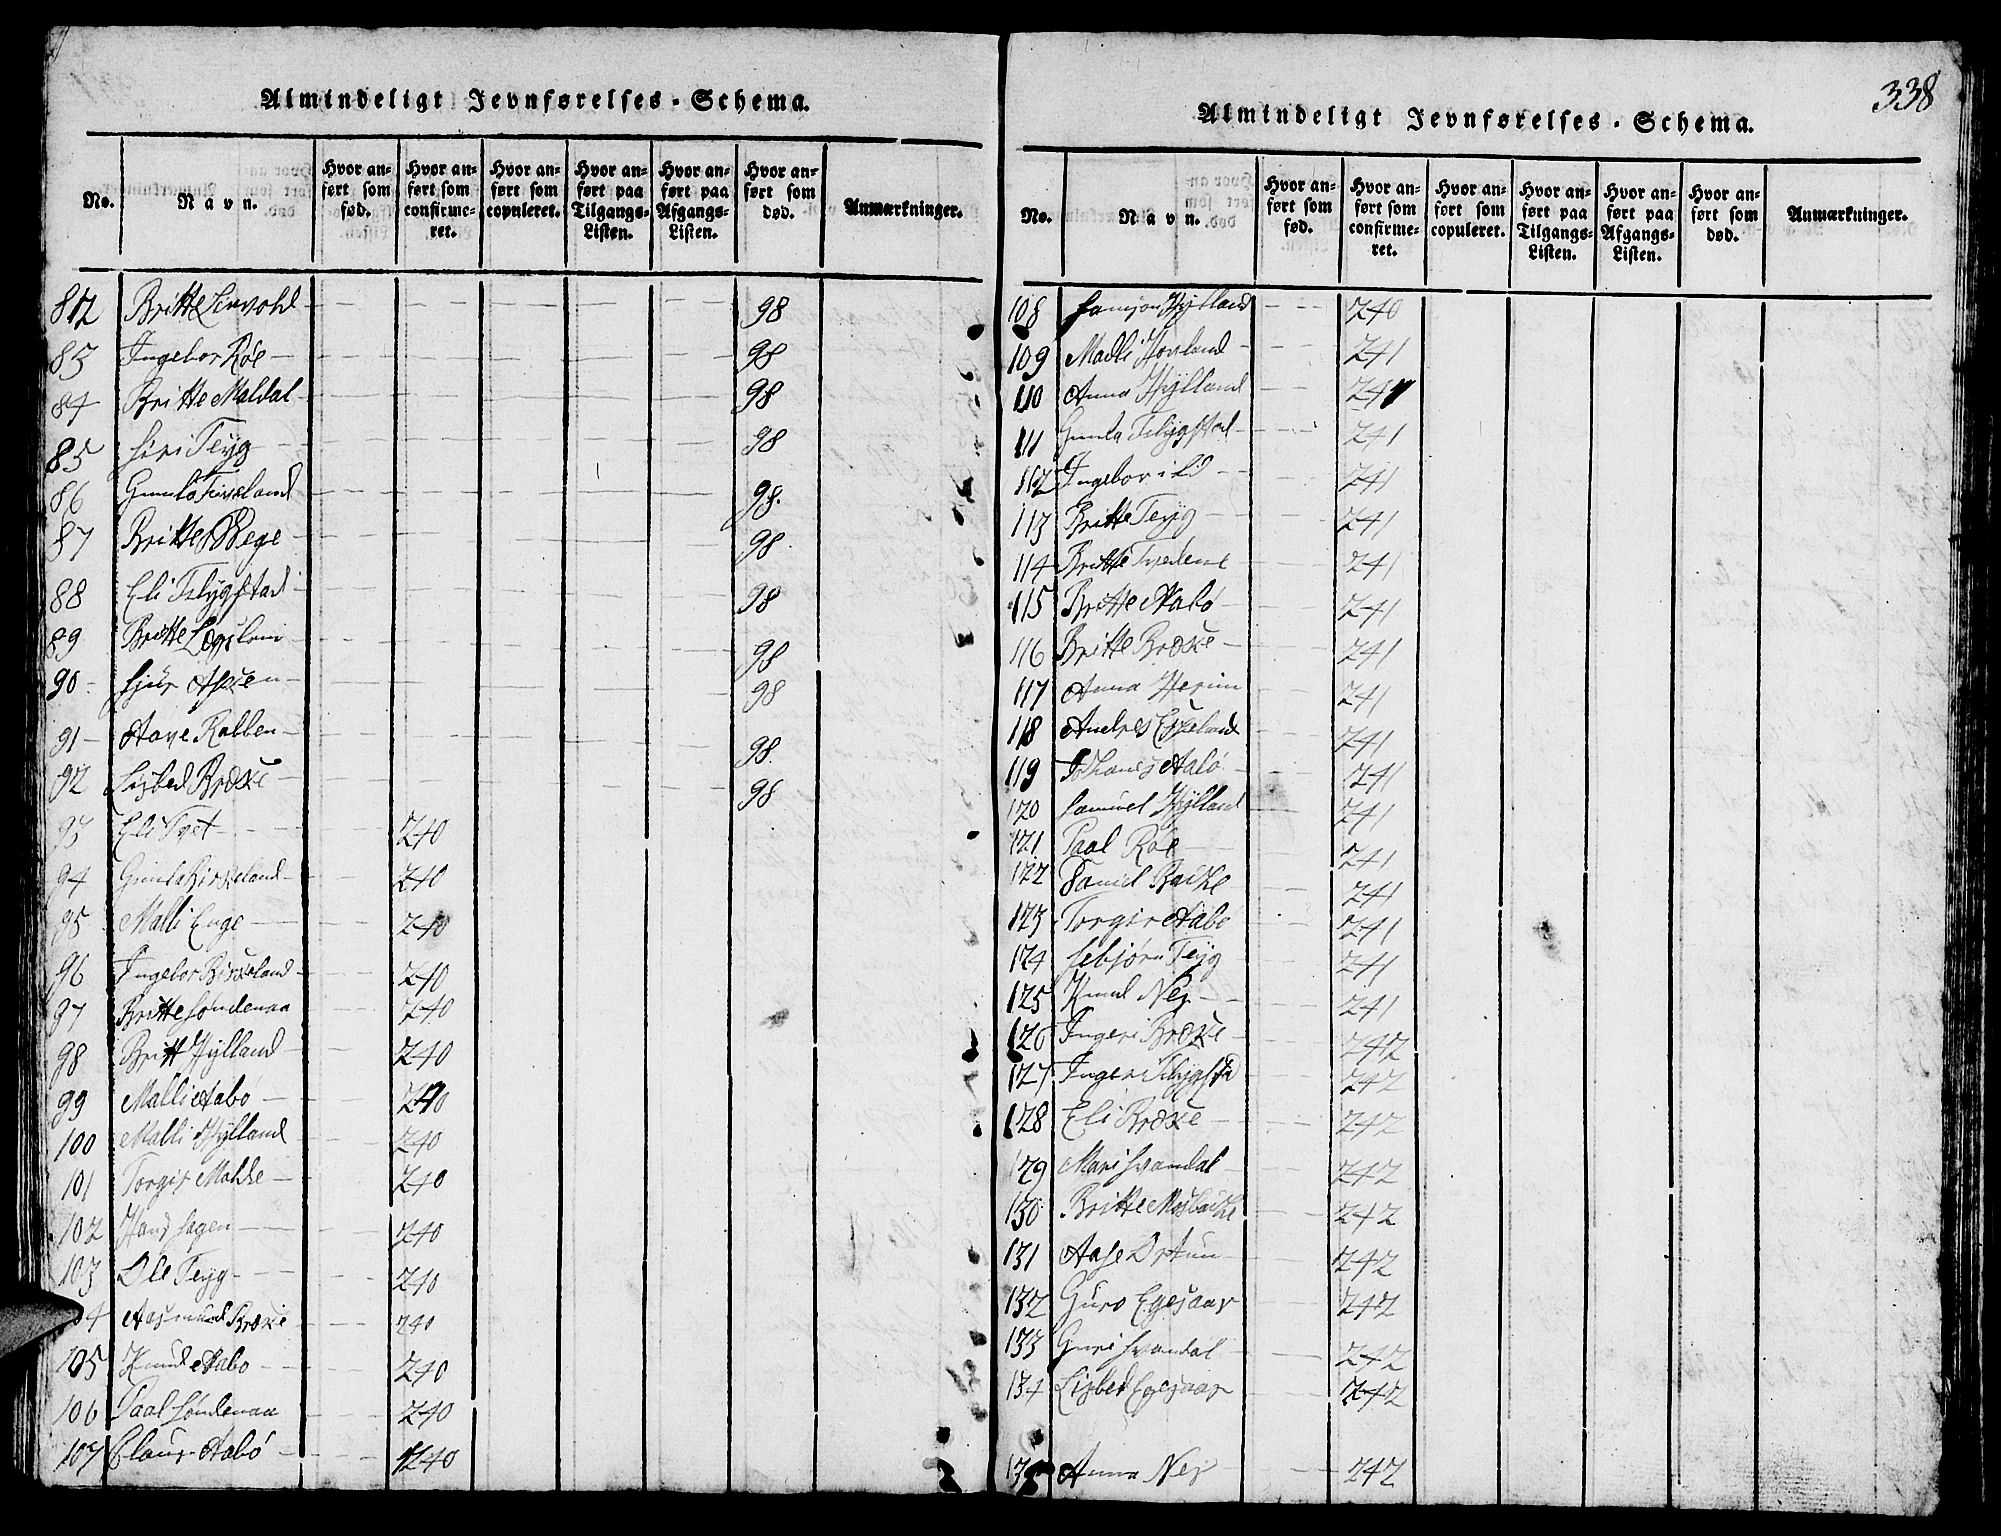 Almindeligt Jevnførelses-Schema.
No. Navn. Hvor anført som fød. Hvor anført som confirmeret. Hvor anført som copuleret. Hvor anført paa Tilgangs-Listen. Hvor anført paa Afgangs-Listen. Hvor anført som død. Anmærkninger.
812 Britte 98
83 Ingebor Røe 98
84 Britte Maldal 98
85 Siri Teyg 98
86 98
87 Britte 98
88 Eli Flygstad 98
89 Britte 98
90 98
91 Aave Rabben 98
92 Lisbed Broske 98
93 Eli Tvet 240
94 Gunla Birkeland 240
95 Malli Enge 240
96 Ingebor Birkeland 240
97 Britte Søndenaa 240
98 Britt Hylland 240
99 Malli Aabø 240
100 Malli Hylland 240
101 Torgir 240
102 Hans Hagen 240
103 Ole Teyg 240
104 Aasmund Broske 240
105 Knud Aabo 240
106 Paal Søndenaa 240
107 Claus Aabó 240
338
Almindeligt Jevnførelses-Schema.
No. Navn. Hvor anført som fød. Hvor anført som confirmeret. Hvor anført som copuleret. Hvor anført paa Tilgangs-Listen. Hvor anført paa Afgangs-Listen. Hvor anført som død. Anmærkninger.
108 Samson Hylland 240
109 Malli Hovland 241
110 Anna Hylland 241
111 Gunla Flygstad 241
112 Ingebor 241
113 Britte Teyg 241
114 Britte 241
115 Britte Aabó 241
116 Britte Broske 241
117 Anna Herim 241
118 Andres Eskeland 241
119 Johanes Aabó 241
120 Samuel Hylland 241
121 Paal Røe 241
122 Daniel Backe 241
123 Torgir Aabó 241
124 Sebjørn Teyg 241
125 Knud Nes 241
126 Ingeri Broske 242
127 Inger Flygsta 242
128 Eli Broske 242
129 Mari Svandal 242
130 Britte Mosbacke 242
131 Aase Ortun 242
132 Guro Egesaar 242
133 Guri Svandal 242
134 Lisbed Egesaar 242
135 Anna Nes 242